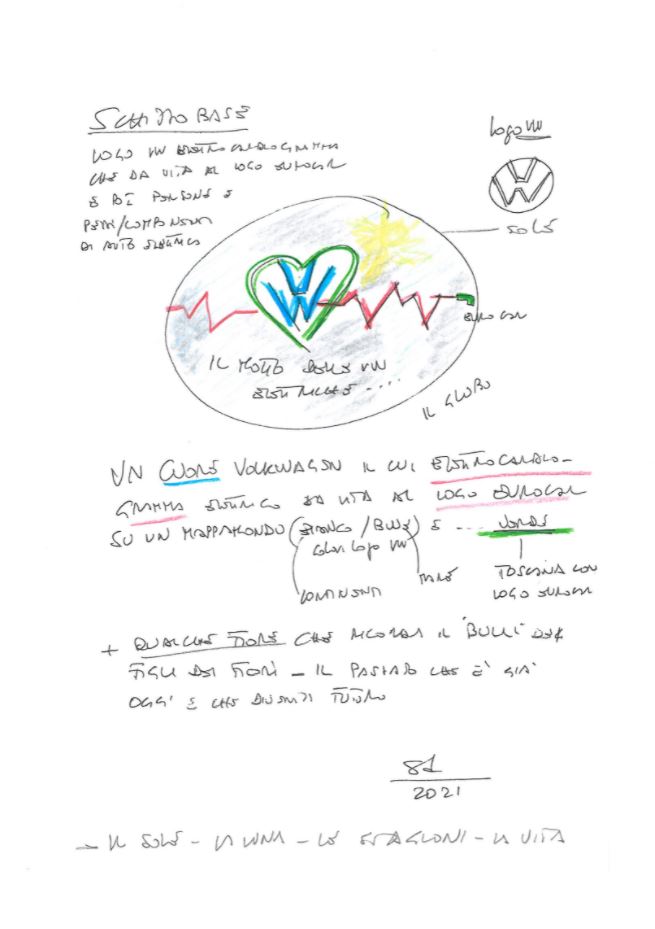 SCHIZZO BASE
LOGO VW ELETTROCARDIOGRAMMA
CHE DA VITA AL LOGO EUROCAR
E POI PERSONE E
PEZZI/COMPONENTI
DI AUTO ELETTRICA
logo VW
VW
SOLE
VW
EUROCAR
IL MONDO DELLE VW
ELETTRICHE ....
IL GLOBO
UN CUORE VOLKWAGEN IL CUI ELETTROCARDIO-
GRAMMA ELETTRICO DA VITA AL LOGO EUROCAR
SU UN MAPPAMONDO (BIANCO/BLUE) E ... VERDE
colori logo VW
CONTINENTI
MARE
TOSCANA CON
LOGO EUROCAR
+ QUALCHE FIORE CHE RICORDA IL "BULLI" DEI
FIGLI DEI FIORI - IL PASSATO CHE E' GIA'
OGGI E CHE DIVENTA FUTURO
81
2021
- IL SOLE - LA LUNA - LE STAGIONI - LA VITA